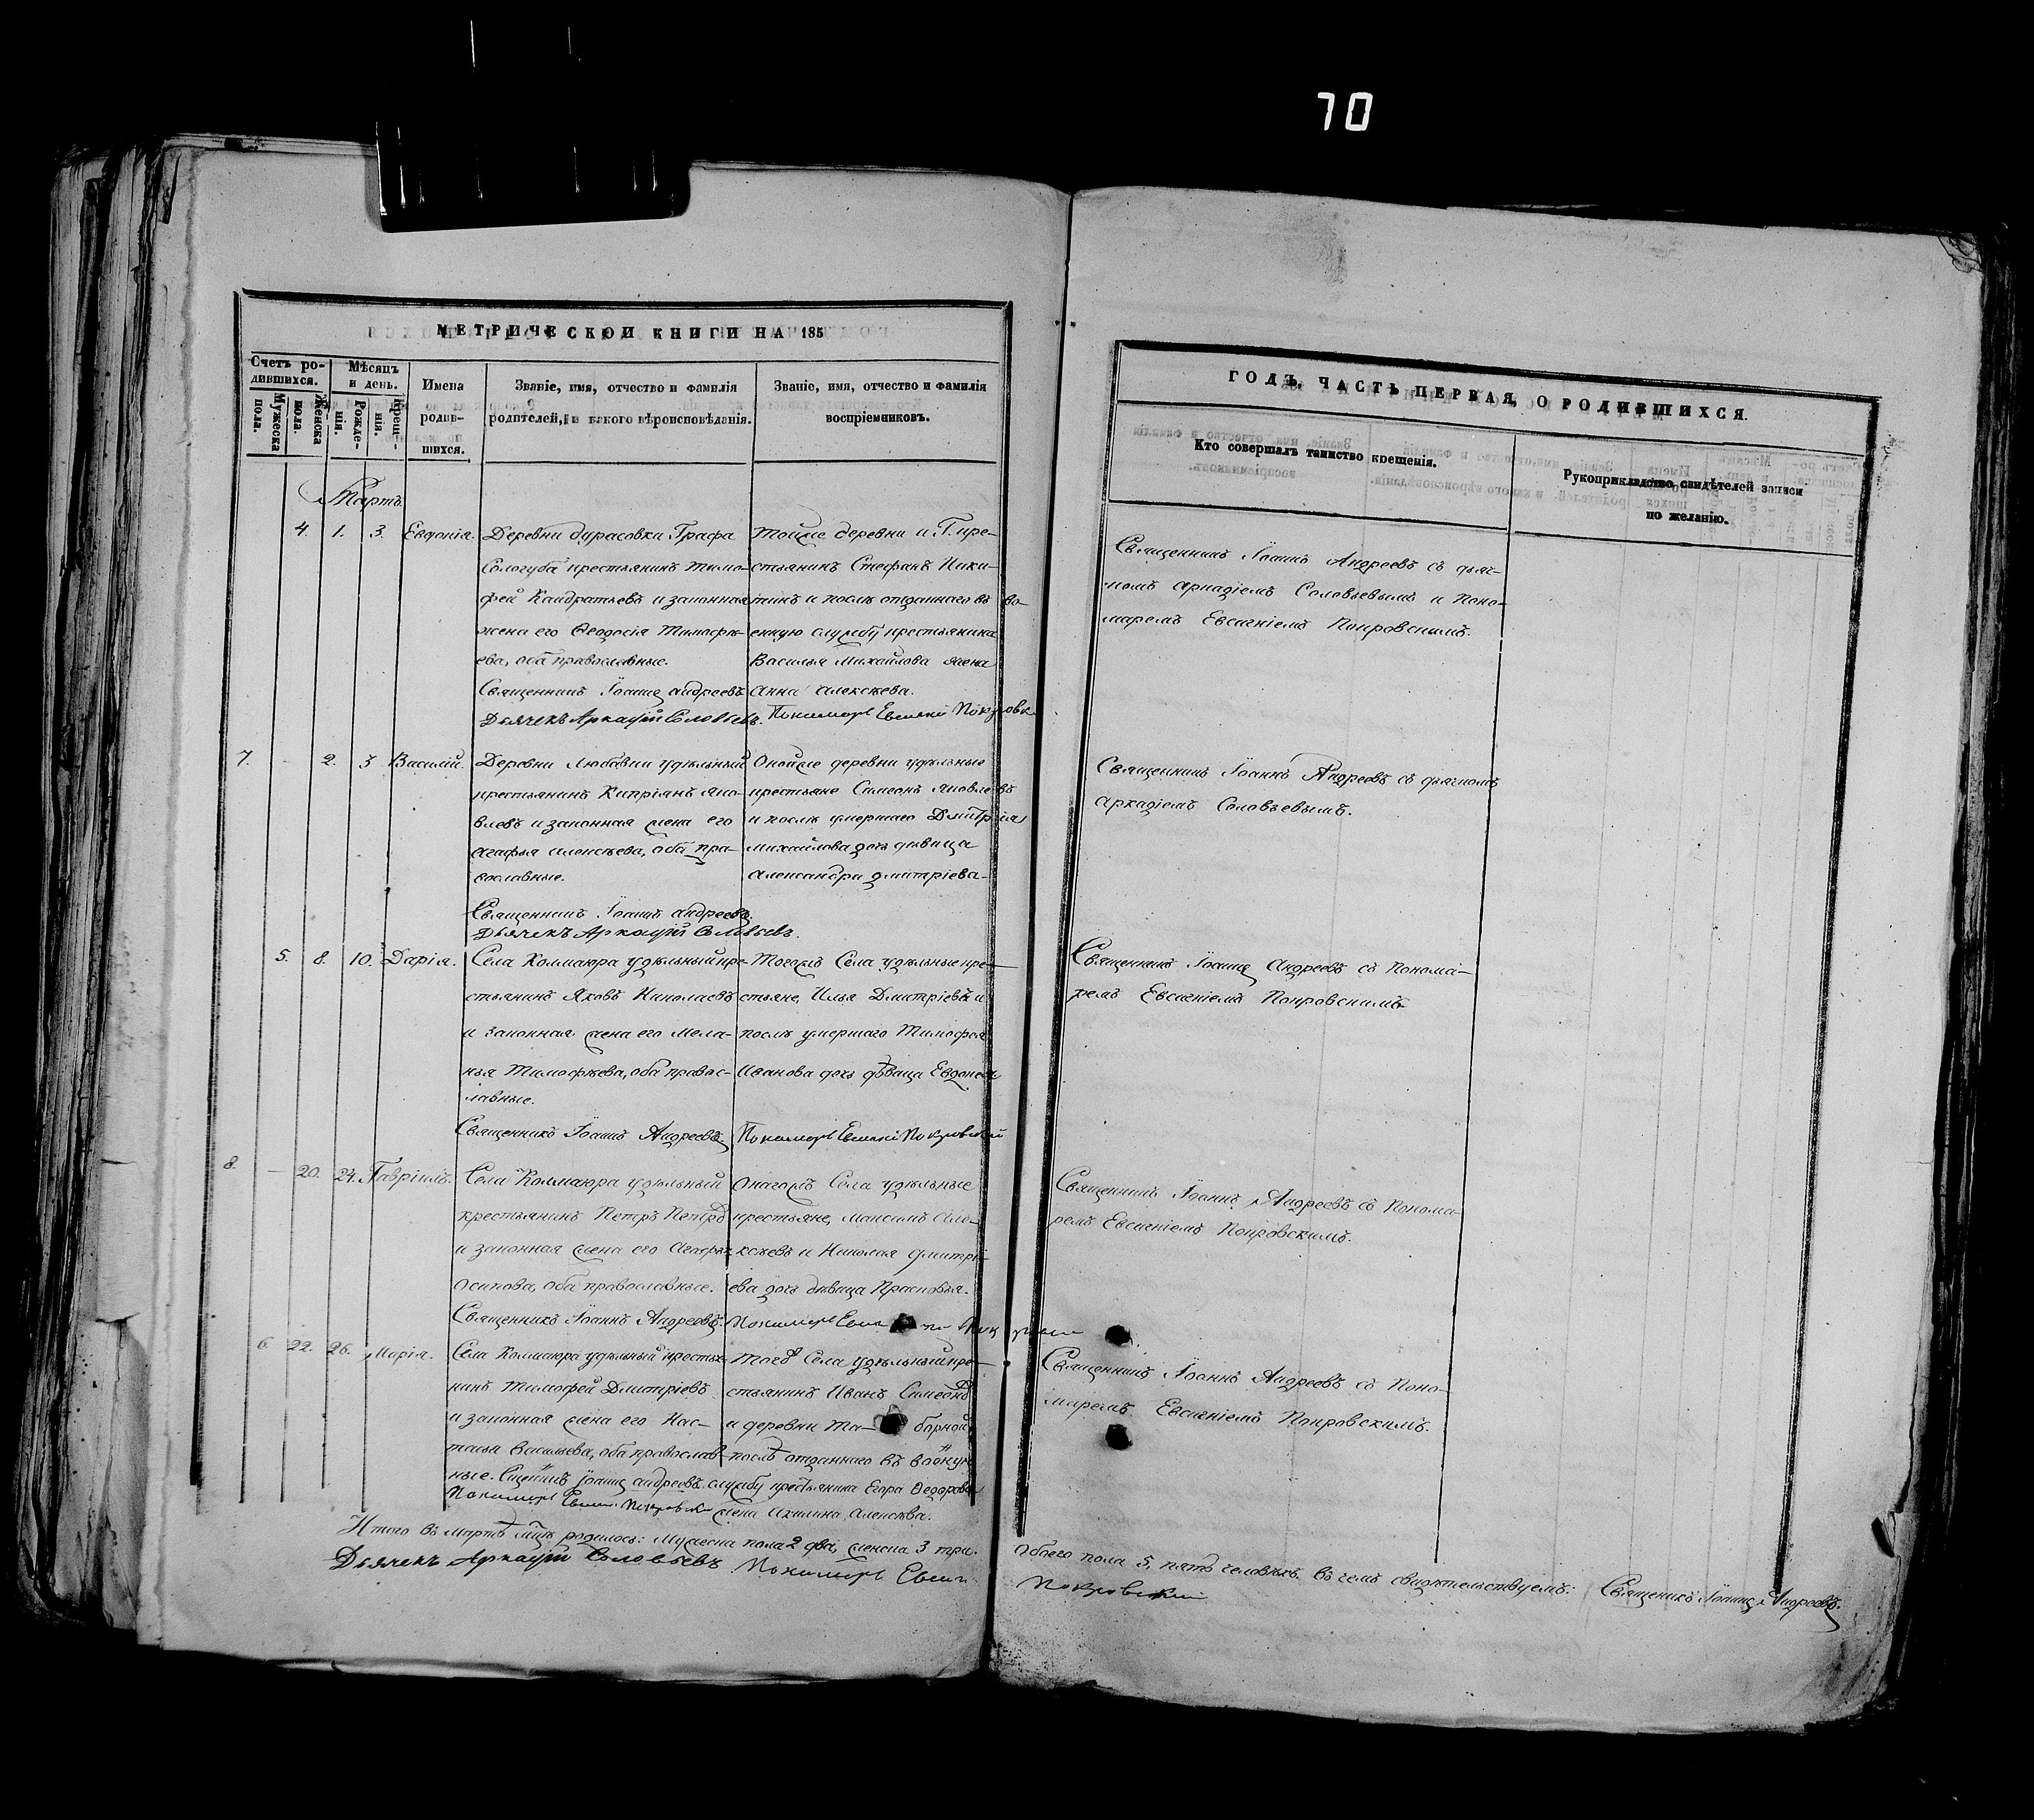 70
МЕТРИЧЕСКОЙ КНИГИ НА 185
Счетъ ро-
дившихся.
Мѣсяцъ
и день.
Мужеска
пола.
Женска
пола.
Рожде-
нія.
Крещ-
нія.
Имена
родив-
шихся.
Званіе, имя, отчество и фамилія
родителей, и какого вѣроисповѣданія.
Званіе, имя, отчество и фамилія
воспріемниковъ.
Мартъ
4. 1. 3. Евдокія.
Деревни Дурасовки Графа
Сологуба крестьянинъ Тимо-
фей Кандратьевъ и законная
жена его Ѳеодосія Тимофѣ-
ева, оба православные.
Священникъ Іоаннъ Андреевъ
Дьячекъ Аркадій Соловьевъ.
Тойже деревни и Г. кре-
стьянинъ Стефанъ Ники-
тинъ и послѣ отданнаго въ во-
енную службу крестьянина
Василья Михайлова жена
Анна Алексѣева.
Пономарь Евсигній Покровск
7. - 2. 3 Василій.
Деревни Любавки удѣльный
крестьянинъ Кипріянъ Яко-
влевъ и законная жена его
Агафья Алексѣева, оба пра-
вославные.
Священникъ Іоаннъ Андреевъ
Дьячекъ Аркадій Соловьевъ.
Онойже деревни удѣльные
крестьяне Симеонъ Яковлевъ
и послѣ умершаго Дмитрія
Михайлова дочь дѣвица
Александра Дмитріева-
5. 8. 10. Дарія.
Села Колмаюра удѣльный кре-
стьянинъ Яковъ Николаевъ
и законная жена его Мела-
нья Тимофѣева, оба правос-
лавные.
Священникъ Іоаннъ Андреевъ.
Тогожъ Села удѣльные кре-
стьяне, Илья Дмитріевъ и
послѣ умершаго Тимофея
Иванова дочь дѣвица Евдокея
Пономарь Евсигній Покровскій
8. - 20. 24. Гавріилъ.
Села Колмаюра удѣльный
крестьянинъ Петръ Петро
и законная жена его Агафья
Осипова, оба православные.
Священникъ Іоаннъ Андреевъ.
Онагожъ Села удѣльные
крестьяне, Максимъ Але-
ксѣевъ и Николая Дмитрі-
ева дочь дѣвица Прасковья.
Пономарь Евси
6 22. 26. Марія.
Села Колмаюра удѣльный крестья-
нинъ Тимофей Дмитріевъ
и законная жена его Нас-
тасья Васильева, оба православ-
ные. Сщенникъ Іоаннъ Андреевъ.
Пономарь Евсиг. Покровски
Тогожъ Села удѣльный кре-
стьянинъ Иванъ Симеоно
и деревни Та- борной,
послѣ отданнаго въ военную
службу крестьянина Егора Ѳедорова
жена Акилина Алексѣва.
Итого въ Мартѣ мцѣ родилось: Мужеска пола 2 два, женска 3 три.
Дьячекъ Аркадій Соловьевъ Пономарь Евсиг-
ГОДЪ, ЧАСТЬ ПЕРВАЯ, О РОДИВШИХСЯ.
Кто совершалъ таинство крещенія.
Рукоприкладство свидѣтелей записи
по желанію.
Священникъ Іоаннъ Андреевъ съ дьяч-
комъ Аркадіемъ Соловьевымъ и Поно-
маремъ Евсигніемъ Покровскимъ.
Священникъ Іоаннъ Андреевъ съ дьячкомъ
Аркадіемъ Соловьевымъ.
Священникъ Іоаннъ Андреевъ съ Понома-
ремъ Евсигніемъ Покровскимъ.
Священникъ Іоаннъ Андреевъ съ Понома-
ремъ Евсигніемъ Покровскимъ.
Священникъ Іоаннъ Андреевъ съ Поно-
маремъ Евсигніемъ Покровскимъ.
Обоего пола 5, пять человѣкъ. въ чемъ свидѣтельствуемъ: Священикъ Іоаннъ Андреевъ.
Покровский